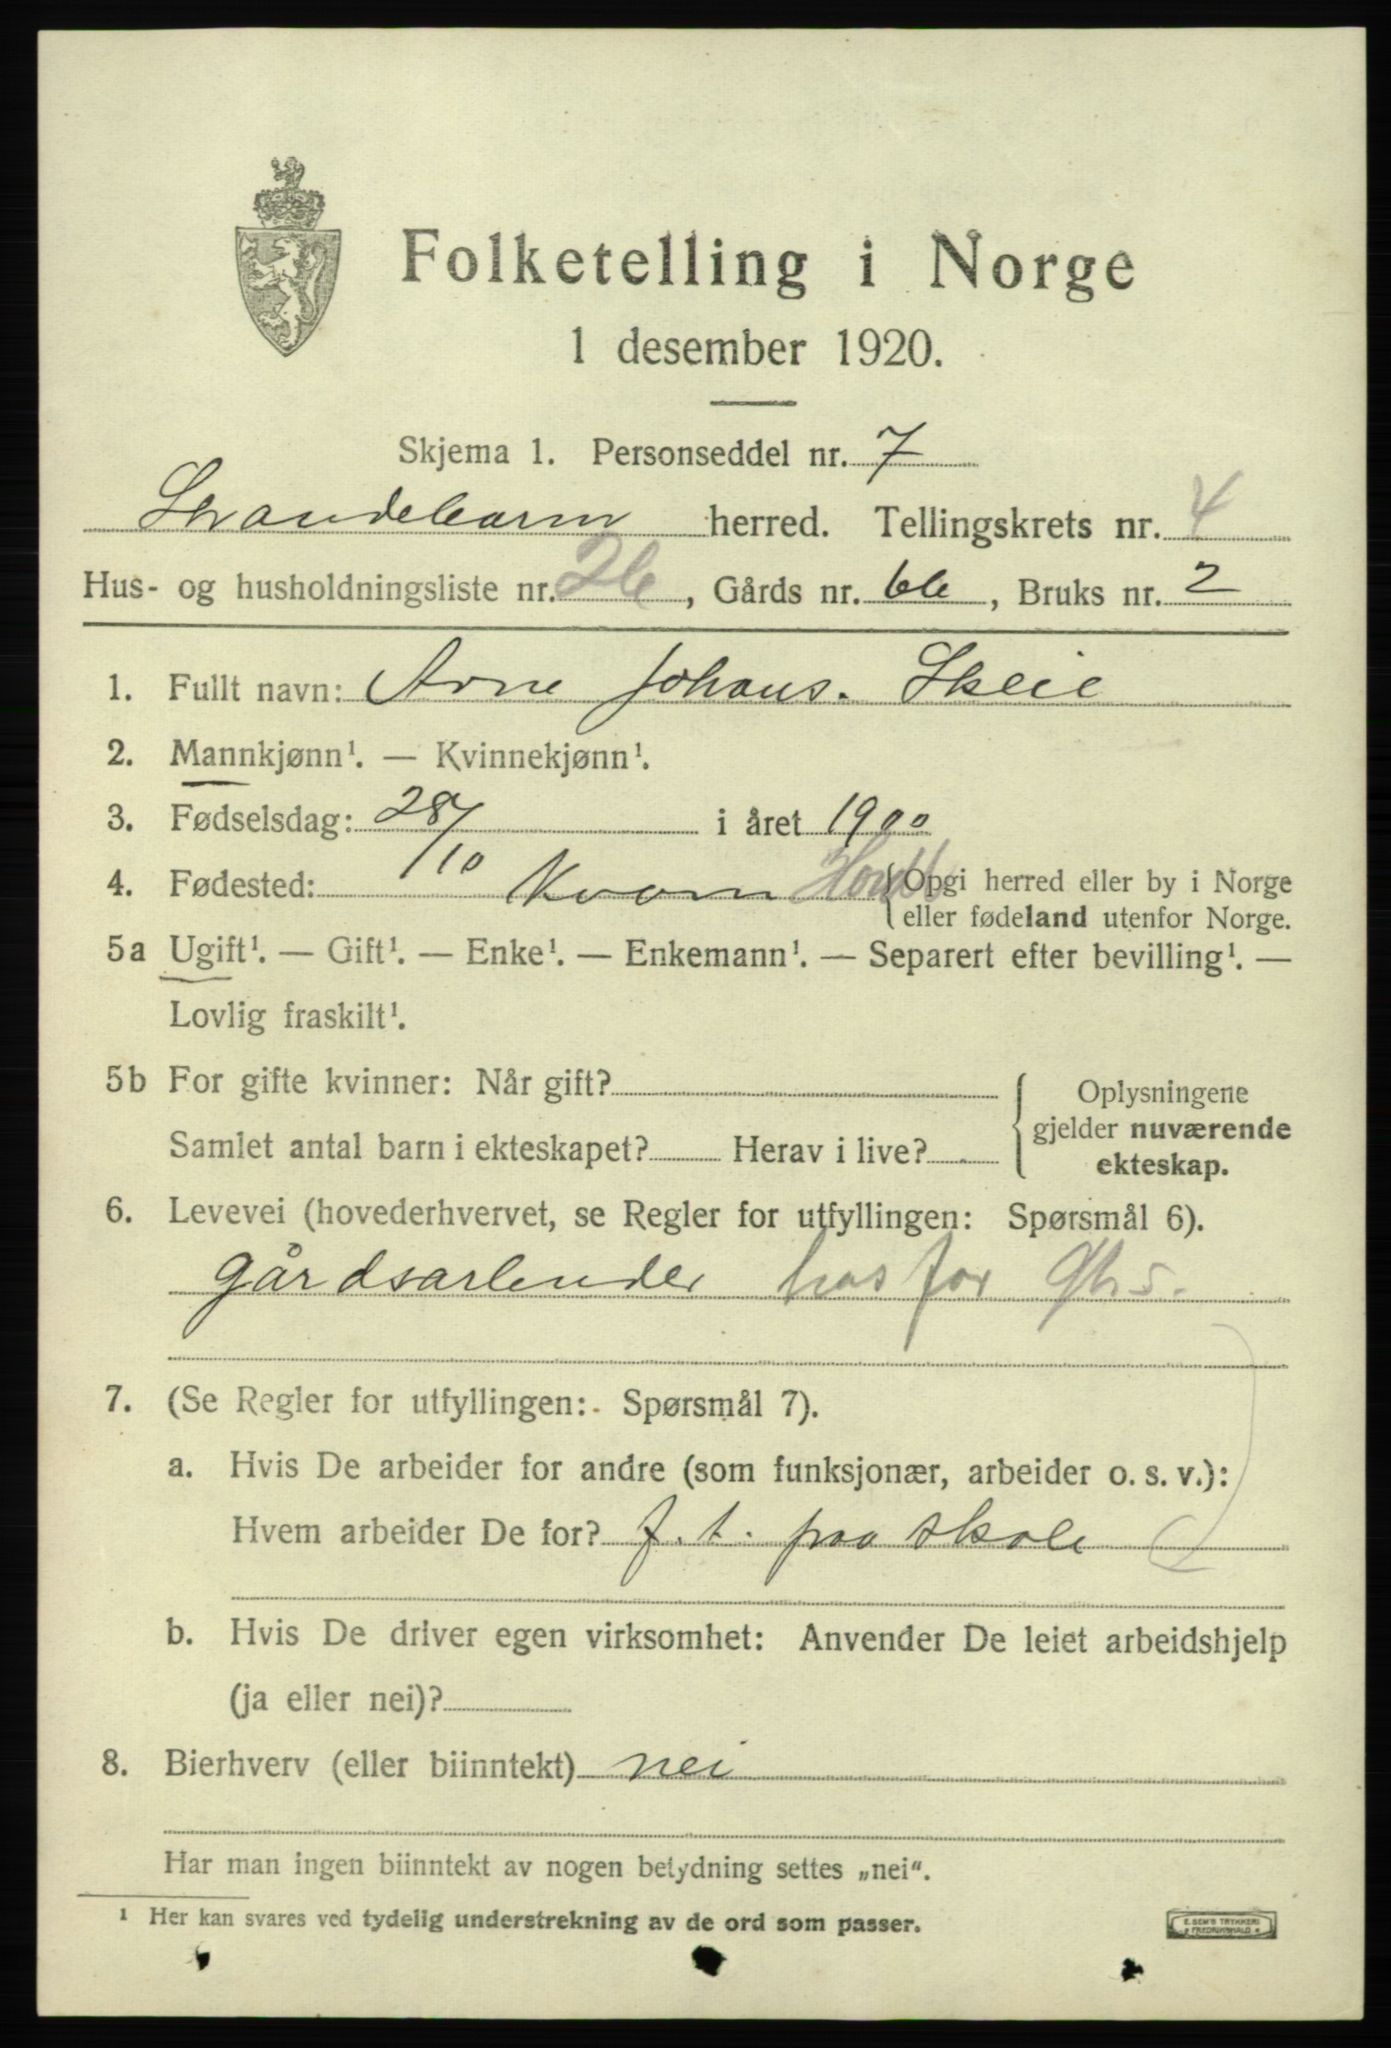 Folketelling i Norge
1 desember 1920.
Skjema 1. Personseddel nr. 7
Strandebarm herred. Tellingskrets nr. 4
Hus- og husholdningsliste nr. 26, Gårds nr. 66, Bruks nr. 2
1. Fullt navn: Arne Johans. Skeie
2. Mannkjønn¹. — Kvinnekjønn¹.
3. Fødselsdag: 28/10 i året 1900
4. Fødested: Kvam Hord. {Opgi herred eller by i Norge
eller fødeland utenfor Norge.
5a Ugift¹. — Gift¹. — Enke¹. — Enkemann¹. — Separert efter bevilling¹. —
Lovlig fraskilt¹.
5b For gifte kvinner: Når gift? { Oplysningene
gjelder nuværende
Samlet antal barn i ekteskapet? Herav i live?
ekteskap.
6. Levevei (hovederhvervet, se Regler for utfyllingen: Spørsmål 6).
gårdsarbeider hos far
7. (Se Regler for utfyllingen: Spørsmål 7).
a. Hvis De arbeider for andre (som funksjonær, arbeider o. s. v.):
Hvem arbeider De for? f. t. paa skole
b. Hvis De driver egen virksomhet: Anvender De leiet arbeidshjelp
(ja eller nei)?
8. Bierhverv (eller biinntekt) nei
Har man ingen biinntekt av nogen betydning settes „nei“.
¹ Her kan svares ved tydelig understrekning av de ord som passer.
E. SEM'S TRYKKERI
FREDRIKSHALD